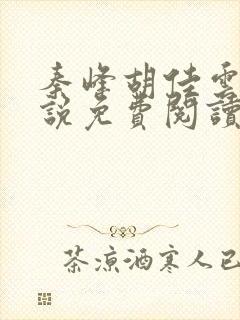 秦峰胡佳雲
說免費閱讀
茶凉酒寒人已